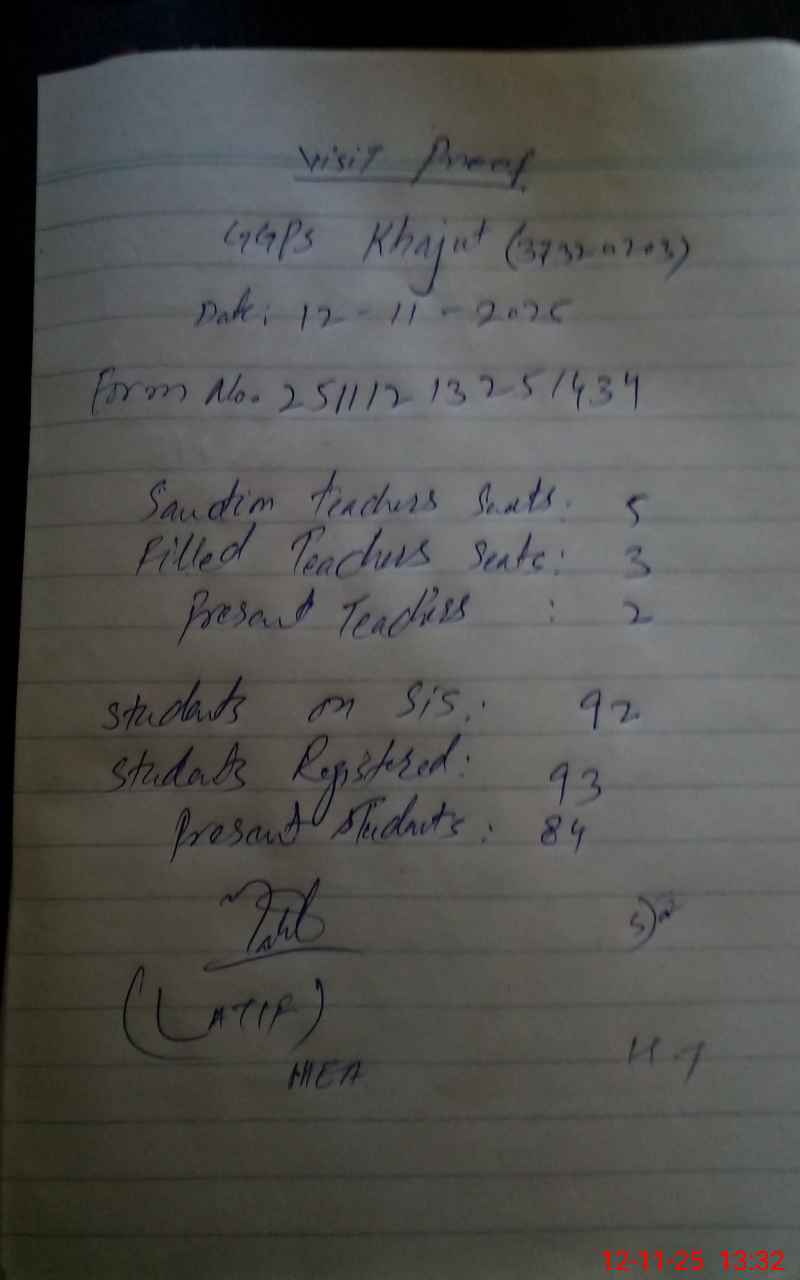 Visit Proof
GGPS Khajut (37320203)
Date: 12-11-2025
Form No. 25111213251434
Sanction teachers Seats: 5
Filled Teachers Seats: 3
Present Teachers : 2
Students on SIS: 92
Students Registered: 93
Present Students: 84
(LATIF)
MEA
12-11-25 13:32